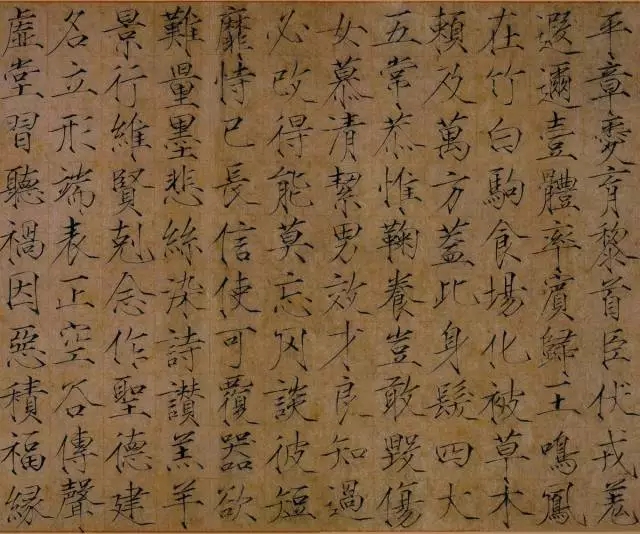 平章愛育黎首臣伏戎羌
遐邇壹體率賓歸王鳴鳳
在竹白駒食場化被草木
賴及萬方蓋此身髮四大
五常恭惟鞠養豈敢毀傷
女慕清絜男效才良知過
必改得能莫忘罔談彼短
靡恃己長信使可覆器欲
難量墨悲絲染詩讃羔羊
景行維賢剋念作聖德建
名立形端表正空谷傳聲
虛堂習聽禍因惡積福緣